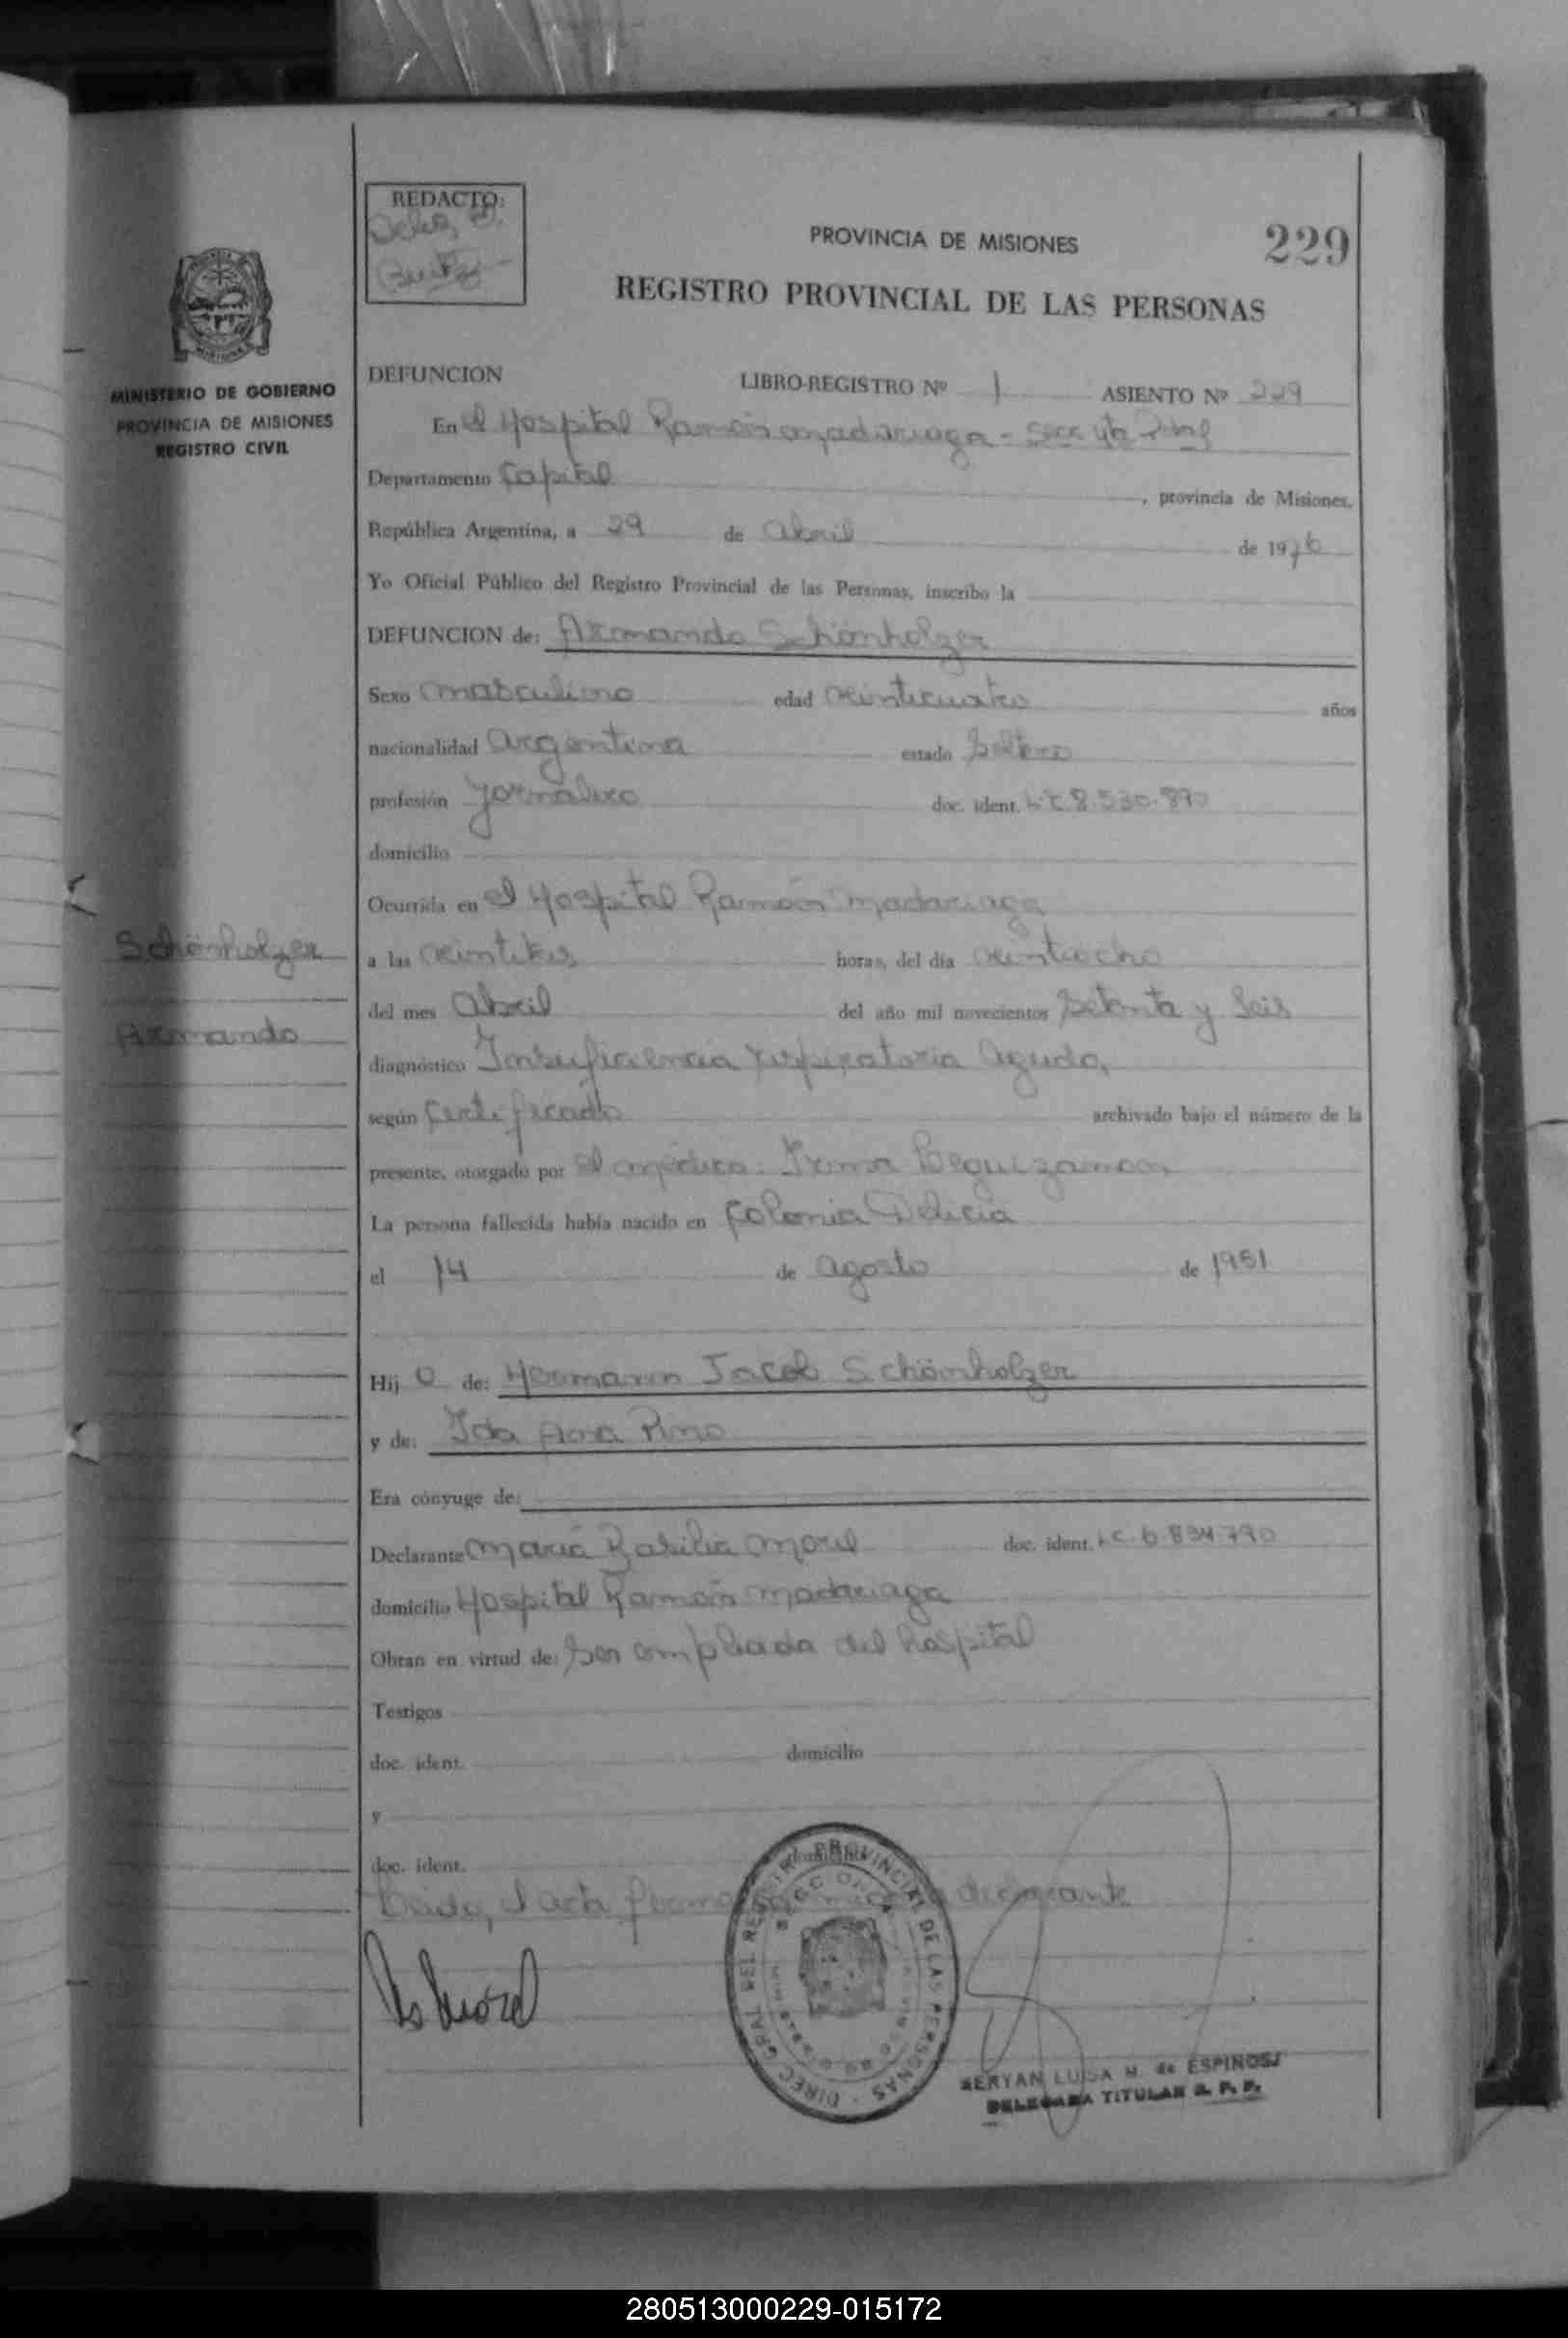 REDACTO:
PROVINCIA DE MISIONES
229
REGISTRO PROVINCIAL DE LAS PERSONAS
MINISTERIO DE GOBIERNO
PROVINCIA DE MISIONES
REGISTRO CIVIL
DEFUNCION LIBRO-REGISTRO Nº 1 ASIENTO Nº 229
En el Hospital Ramón Madariaga - Secc 4ta
Departamento Capital, provincia de Misiones,
República Argentina, a 29 de Abril de 1976
Yo Oficial Público del Registro Provincial de las Personas, inscribo la
DEFUNCION de: Armando Schönholzer
Sexo masculino edad veinticuatro años
nacionalidad Argentina estado Soltero
profesión Jornalero doc. ident. 8.530.890
domicilio
Ocurrida en el Hospital Ramón Madariaga
Schönholzer
a las veintitres horas, del día veintiocho
del mes Abril del año mil novecientos Setenta y Seis
Armando
diagnóstico Insuficiencia respiratoria Aguda,
según Certificado archivado bajo el número de la
presente, otorgado por el médico: Irma Beguizamon
La persona fallecida había nacido en Colonia Delicia
el 14 de agosto de 1951
Hij o de: Hermann Jacob Schönholzer
y de: Ida Ana Pino
Era cónyuge de:
Declarante María Basilia Morel doc. ident. L.C. 6.834.790
domicilio Hospital Ramón Madariaga
Obran en virtud de: Ser empleada del hospital
Testigos
doc. ident. domicilio
y
doc. ident. domicilio
Leida, el acta firma declarante
Morel
DIREC. GRAL. DEL REGISTRO PROVINCIAL DE LAS PERSONAS
LUISA M. de ESPINOSA
DELEGADA TITULAR R. P. P.
280513000229-015172